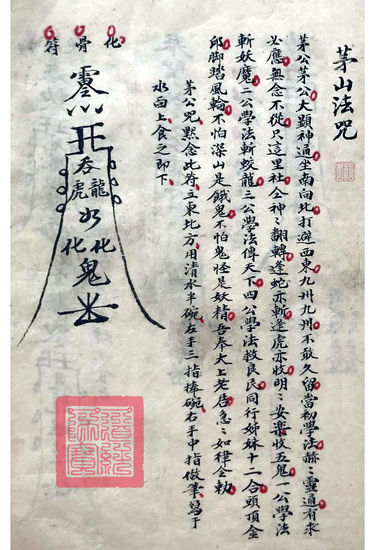 茅山法咒
茅公茅公大顯神通坐南向北打避西東九州九州不敢久留當初學法赫〻靈通有求
必應無念不從只這里社仝神〻翻轉逢蛇亦斬逢虎亦收明〻安樂收五鬼一公學法
斬妖魔二公學法斬蛟龍三公學法傳天下四公學法救良民同行姊妹十二合頭頂金
邱脚踏風輪不怕深山是餓鬼不怕鬼怪是妖精吾奉太上老君急〻如律令勅
茅公咒黙念此符立東北方用清水半碗左手三指捧碗右手中指做筆寫于
水面上食之即下
化骨符
吞
龍
虎
化
化
鬼